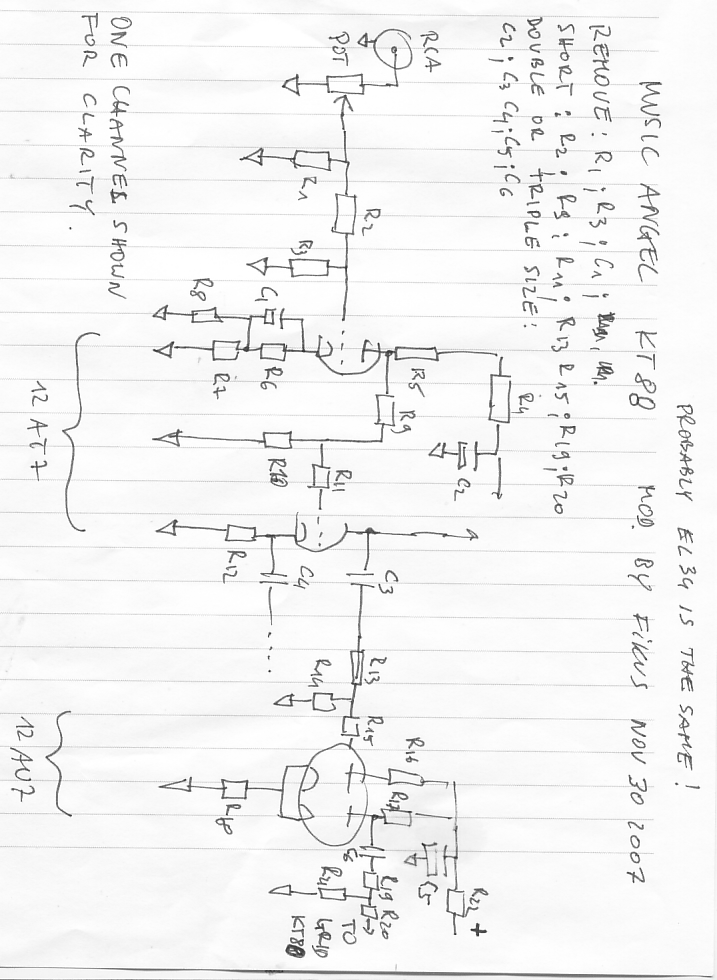 PROBABLY EL34 IS THE SAME!
MUSIC ANGEL KT88 MOD. BY FIKUS NOV 30 2007
REMOVE: R1; R3; C1;
SHORT: R2; R9; R11; R13 R15; R19; R20
DOUBLE OR TRIPLE SIZE:
C2; C3 C4; C5; C6
RCA
POT
R1
R2
R3
R4
C2
R5
R9
C1
R6
R8
R7
R10
R11
C3
C4
R12
R13
R14
R15
R16
R17
C5
R22
+
R18
R19
R20
R21
TO
GRID
KT88
12AT7
12AU7
ONE CHANNEL SHOWN
FOR CLARITY.